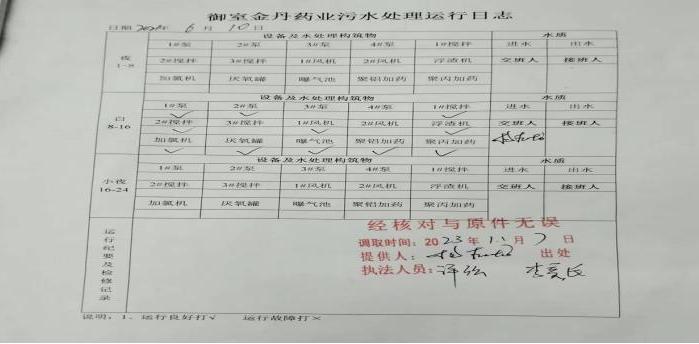 御室金丹药业污水处理运行日志
日期 6 月 10 日
设备及水处理构筑物 水质
夜 1-8
1#泵 2#泵 3#泵 4#泵 1#搅拌 进水 出水
2#搅拌 3#搅拌 1#风机 2#风机 浮渣机 交班人 接班人
加氯机 厌氧罐 曝气池 聚铝加药 聚丙加药
设备及水处理构筑物 水质
白 8-16
1#泵 2#泵 3#泵 4#泵 1#搅拌 进水 出水
✓ ✓ ✓ ✓ ✓
2#搅拌 3#搅拌 1#风机 2#风机 浮渣机 交班人 接班人
✓ ✓ ✓ ✓
加氯机 厌氧罐 曝气池 聚铝加药 聚丙加药
✓ ✓ ✓ ✓
设备及水处理构筑物 水质
小夜 16-24
1#泵 2#泵 3#泵 4#泵 1#搅拌 进水 出水
2#搅拌 3#搅拌 1#风机 2#风机 浮渣机 交班人 接班人
加氯机 厌氧罐 曝气池 聚铝加药 聚丙加药
运行纪要及检修记录
经核对与原件无误
调取时间: 2023年11月7日
提供人: 出处
执法人员:
说明: 1、运行良好打√ 运行故障打×